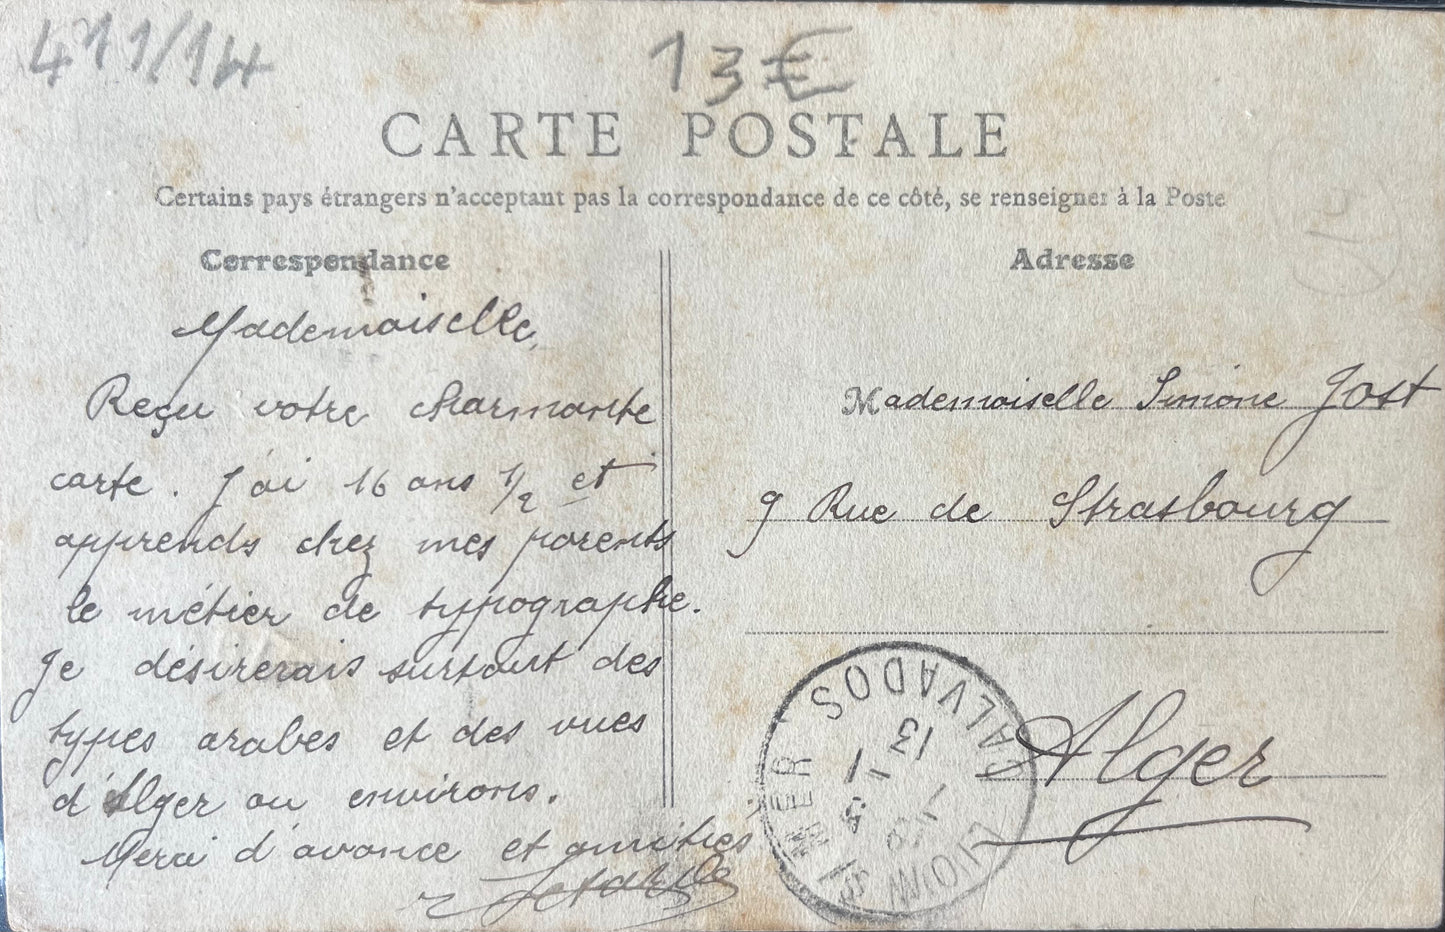 411/14
13€
CARTE POSTALE
Certains pays étrangers n'acceptant pas la correspondance de ce côté, se renseigner à la Poste
Correspondance
Mademoiselle,
Reçu votre charmante
carte. J'ai 16 ans 1/2 et
apprends chez mes parents
le métier de typographe.
Je désirerais surtout des
types arabes et des vues
d'Alger ou environs.
Merci d'avance et amitiés
Adresse
Mademoiselle Simone Jost
9 Rue de Strasbourg
Alger
LION S/ MER
CALVADOS
13